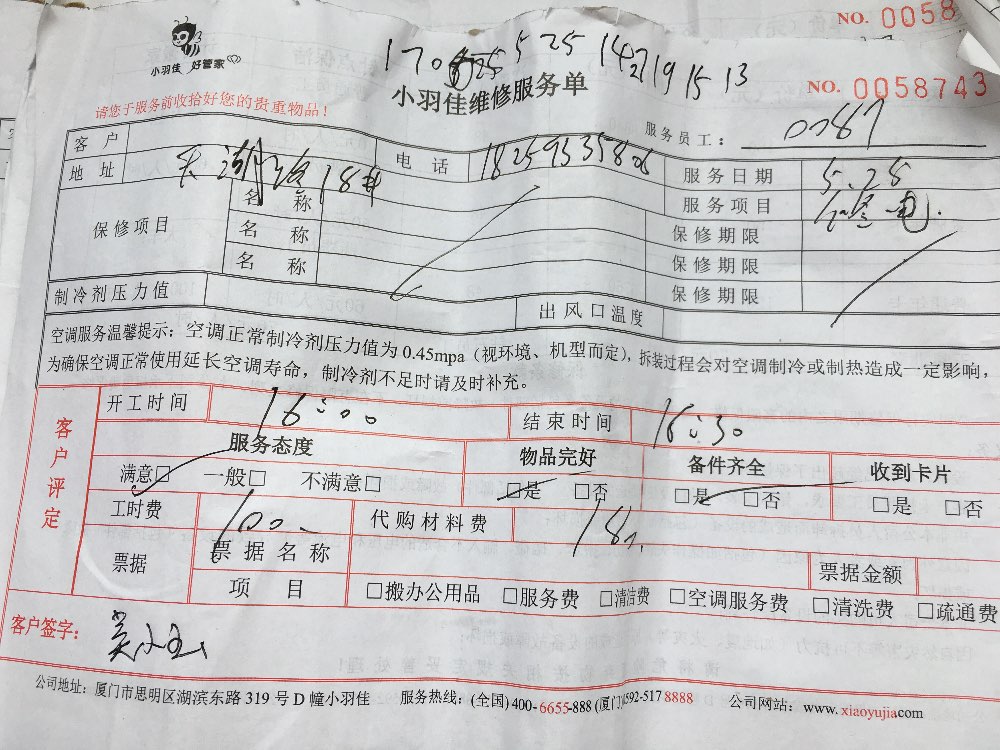 NO. 0058
小羽佳 好管家
小羽佳维修服务单
NO. 0058743
请您于服务前收拾好您的贵重物品！
服务员工： 0087
客户
地址 18#
电话 18259535806
服务日期 5.28
服务项目
保修项目
名称
名称
名称
保修期限
保修期限
保修期限
制冷剂压力值
出风口温度
空调服务温馨提示：空调正常制冷剂压力值为0.45mpa（视环境、机型而定），拆装过程会对空调制冷或制热造成一定影响，
为确保空调正常使用延长空调寿命，制冷剂不足时请及时补充。
客户评定
开工时间 16:00
结束时间 16:30
服务态度 物品完好 备件齐全 收到卡片
满意□ 一般□ 不满意□ □是 □否 □是 □否 □是 □否
工时费 100.-
代购材料费 18
票据
票据名称
票据金额
项目 □搬办公用品 □服务费 □清洁费 □空调服务费 □清洗费 □疏通费
客户签字：
公司地址：厦门市思明区湖滨东路 319 号 D 幢小羽佳 服务热线：(全国) 400-6655-888 (厦门)0592-517 8888 公司网站：www.xiaoyujia.com